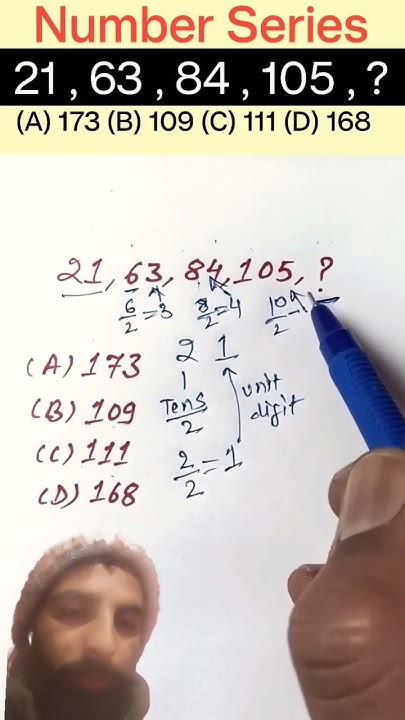 Number Series
21 , 63 , 84 , 105 , ?
(A) 173 (B) 109 (C) 111 (D) 168
21, 63, 84, 105, ?
6/2 = 3 8/2 = 4 10/2 =
(A) 173
(B) 109
(C) 111
(D) 168
2 1
Tens/2
unit
digit
2/2 = 1